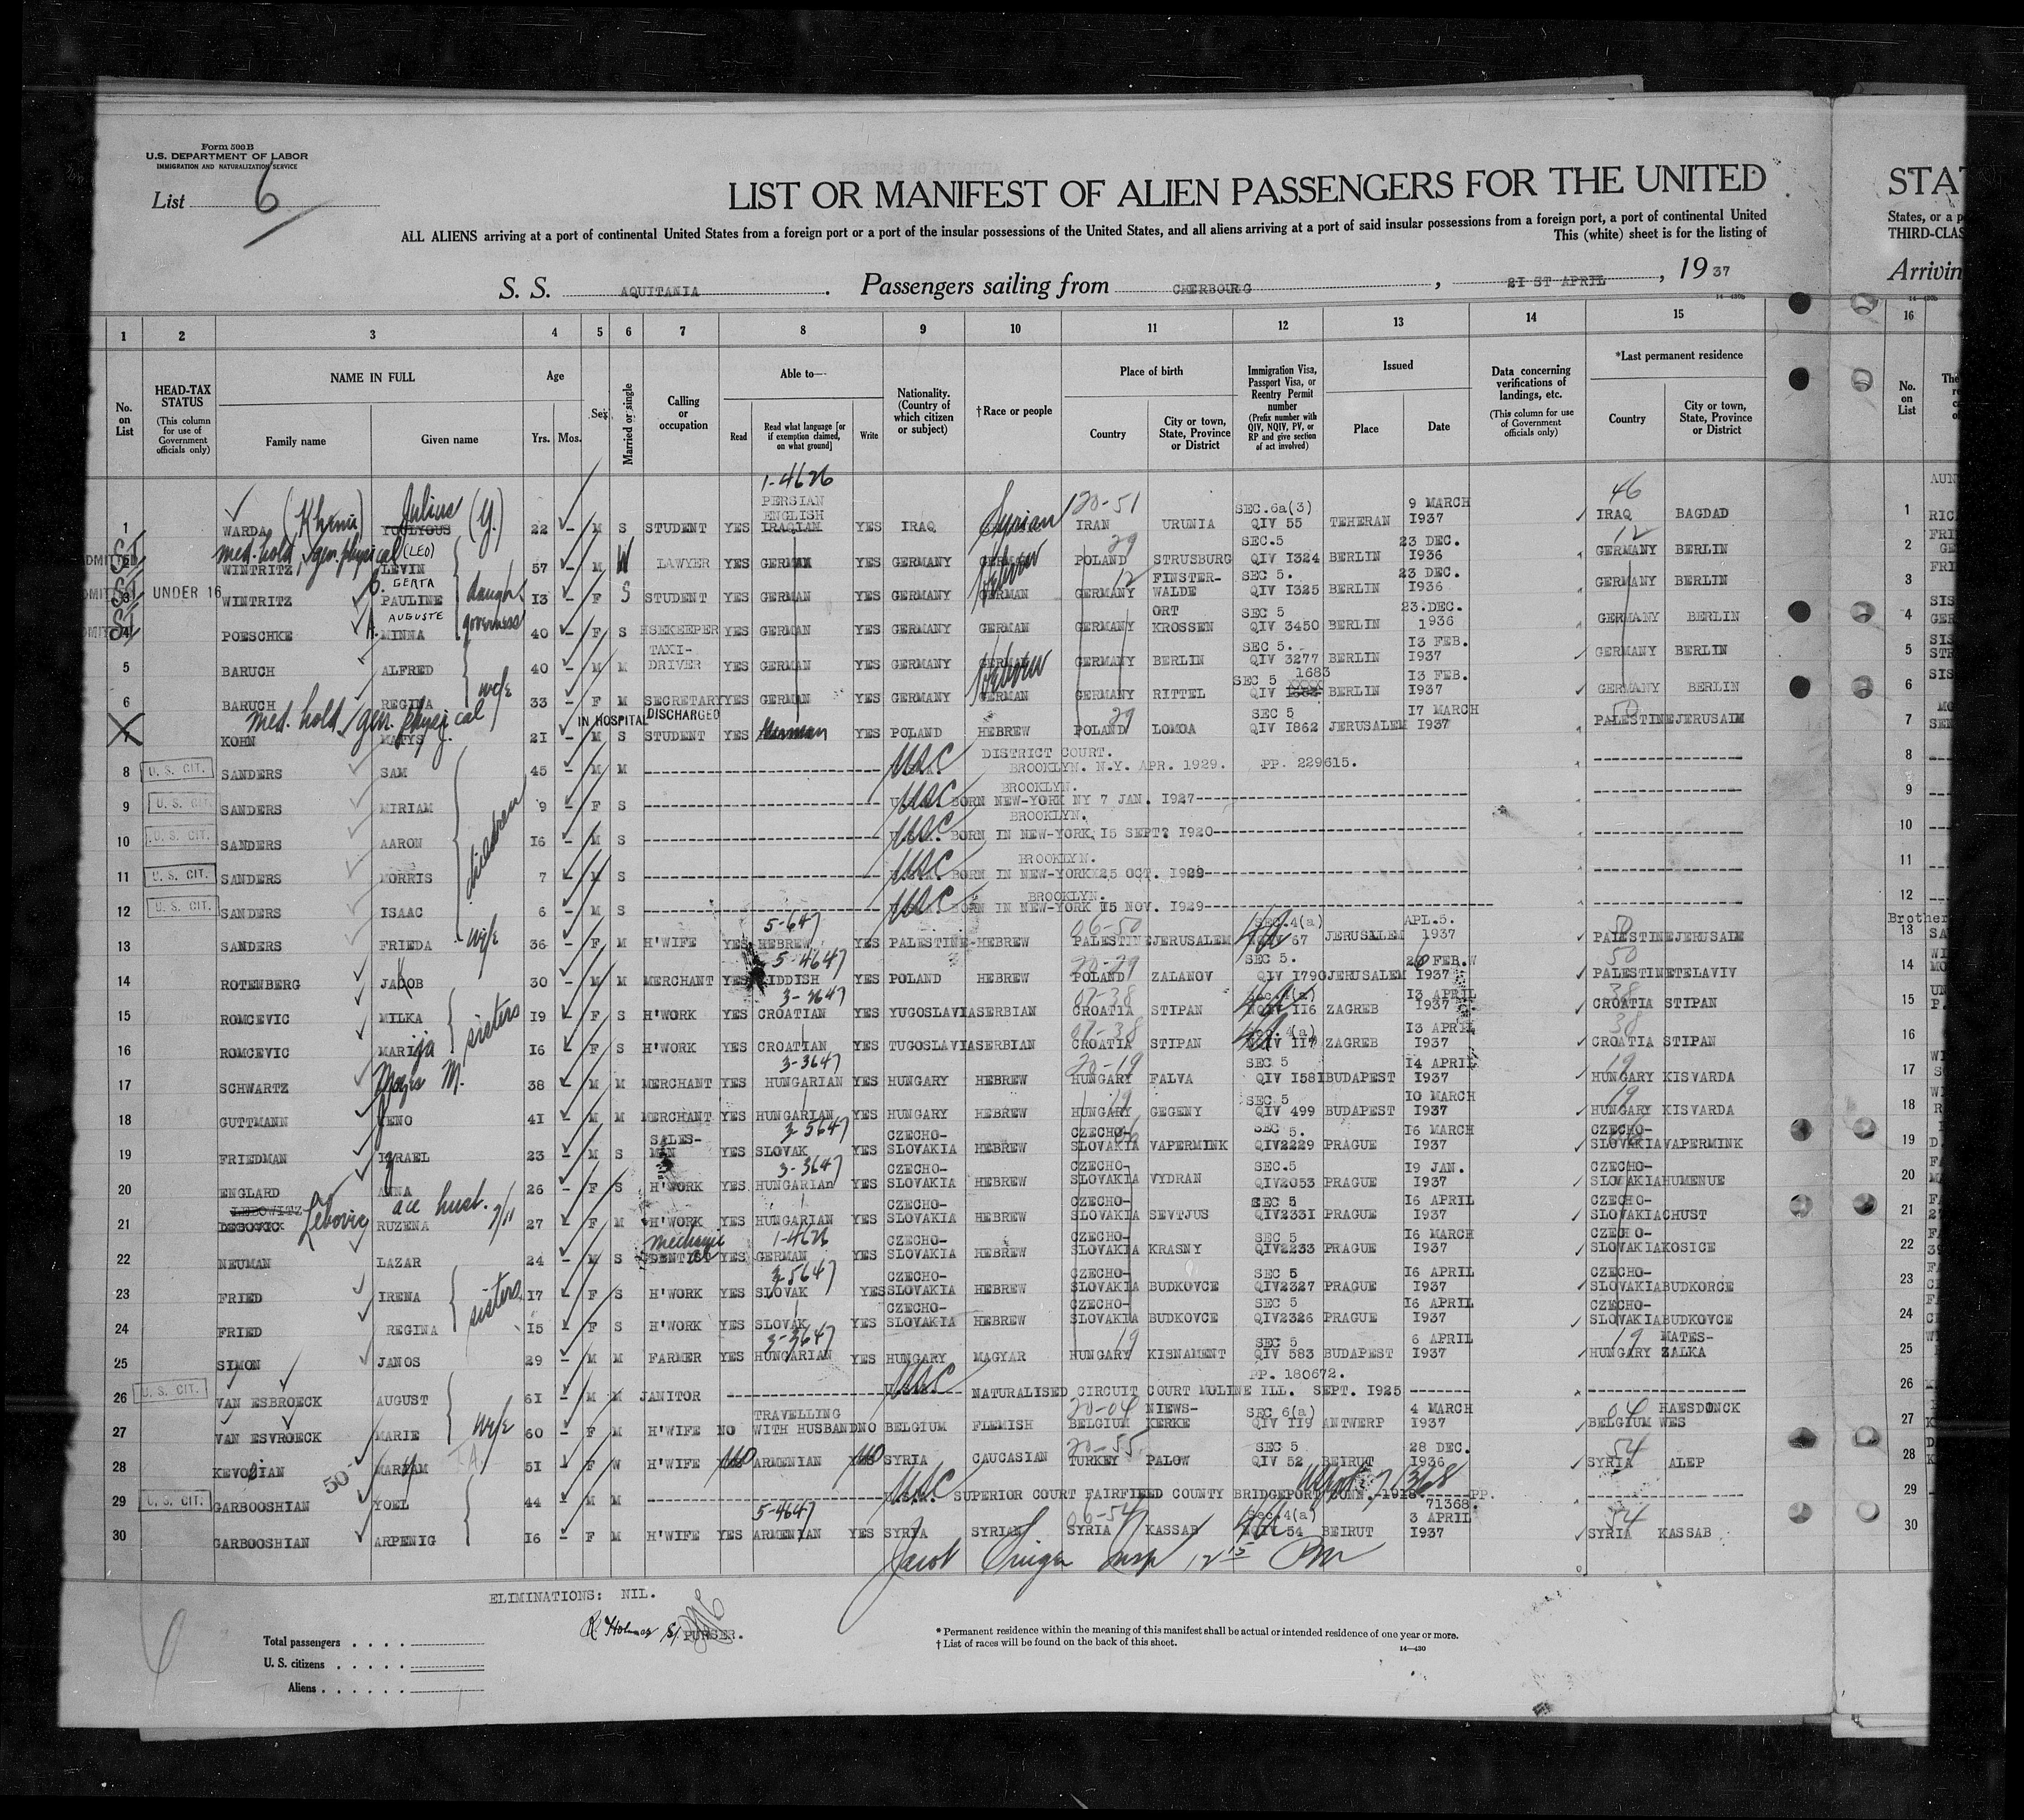 Form 500B
U.S. DEPARTMENT OF LABOR
IMMIGRATION AND NATURALIZATION SERVICE
List 6
LIST OR MANIFEST OF ALIEN PASSENGERS FOR THE UNITED
STA
ALL ALIENS arriving at a port of continental United States from a foreign port or a port of the insular possessions of the United States, and all aliens arriving at a port of said insular possessions from a foreign port, a port of continental United
States, or a p
This (white) sheet is for the listing of
THIRD-CLAS
S. S. AQUITANIA. Passengers sailing from CHERBOURG, 2I ST APRIL, 1937
Arrivin
14-430b
1 2 3 4 5 6 7 8 9 10 11 12 13 14 15 16
No. on List
HEAD-TAX STATUS (This column for use of Government officials only)
NAME IN FULL Family name Given name
Age Yrs. Mos.
Sex
Married or single
Calling or occupation
Able to— Read Read what language [or if exemption claimed, on what ground] Write
Nationality. (Country of which citizen or subject)
†Race or people
Place of birth Country City or town, State, Province or District
Immigration Visa, Passport Visa, or Reentry Permit number (Prefix number with QIV, NQIV, PV, or RP and give section of act involved)
Issued Place Date
Data concerning verifications of landings, etc. (This column for use of Government officials only)
*Last permanent residence Country City or town, State, Province or District
No. on List
1 WARDA (Khenu) YOULYOUS Julius (Y.) 22 - M S STUDENT YES 1-4626 PERSIAN ENGLISH IRAQIAN YES IRAQ Syrian 120-51 IRAN URUNIA SEC.6a(3) QIV 55 TEHERAN 9 MARCH I937 46 IRAQ BAGDAD
med. hold / gen. physical
2 WINTRITZ (LEO) LEVIN 57 - M W LAWYER YES GERMAN YES GERMANY GERMAN Hebrew 29 POLAND STRUSBURG SEC.5 QIV I324 BERLIN 23 DEC. I936 12 GERMANY BERLIN
3 UNDER 16 WINTRITZ G. GERTA PAULINE daught. I3 - F S STUDENT YES GERMAN YES GERMANY GERMAN 12 GERMANY FINSTER-WALDE SEC 5. QIV I325 BERLIN 23 DEC. I936 GERMANY BERLIN
4 POESCHKE A. AUGUSTE MINNA governess 40 - F S HSEKEEPER YES GERMAN YES GERMANY GERMAN GERMANY ORT KROSSEN SEC 5 QIV 3450 BERLIN 23.DEC. 1936 GERMANY BERLIN
5 BARUCH ALFRED 40 - M M TAXI-DRIVER YES GERMAN YES GERMANY GERMAN Hebrew GERMANY BERLIN SEC 5. QIV 3277 BERLIN I3 FEB. I937 GERMANY BERLIN
6 BARUCH REGINA wife 33 - F M SECRETARY YES GERMAN YES GERMANY GERMAN GERMANY RITTEL SEC 5 1683 QIV BERLIN I3 FEB. I937 GERMANY BERLIN
med. hold / gen. physical IN HOSPITAL DISCHARGED
7 KOHN MATYS 2I - M S STUDENT YES German YES POLAND HEBREW 29 POLAND LOMOA SEC 5 QIV I862 JERUSALEM I7 MARCH I937 50 PALESTINE JERUSALM
8 U. S. CIT. SANDERS SAM 45 - M M USC DISTRICT COURT. BROOKLYN. N.Y. APR. 1929. PP. 229615.
9 U. S. CIT. SANDERS MIRIAM 9 - F S USC BROOKLYN. BORN NEW-YORK NY 7 JAN. I927
10 U. S. CIT. SANDERS AARON children I6 - M S USC BROOKLYN. BORN IN NEW-YORK, I5 SEPT? I920
11 U. S. CIT. SANDERS MORRIS 7 - M S USC BROOKLYN. BORN IN NEW-YORKX25 OCT. I929
12 U. S. CIT. SANDERS ISAAC 6 - M S USC BROOKLYN. BORN IN NEW-YORK I5 NOV. I929
13 SANDERS FRIEDA - wife 36 - F M H'WIFE YES 5-647 HEBREW YES PALESTINE-HEBREW 06-50 PALESTINE JERUSALEM SEC.4(a) NQIV 67 JERUSALEM APL.5. 1937 50 PALESTINE JERUSALE
14 ROTENBERG JACOB 30 - M M MERCHANT YES 5-4647 YIDDISH YES POLAND HEBREW 20-29 POLAND ZALANOV SEC 5. QIV I790 JERUSALEM 26 FEB. I937 50 PALESTINE TELAVIV
15 ROMCEVIC MILKA sisters I9 - F S H'WORK YES 3-3647 CROATIAN YES YUGOSLAVIA SERBIAN 07-38 CROATIA STIPAN Sec.4(a) NQIV 116 ZAGREB I3 APRIL I937 38 CROATIA STIPAN
16 ROMCEVIC MARIja I6 - F S H'WORK YES CROATIAN YES TUGOSLAVIA SERBIAN 07-38 CROATIA STIPAN Sec.4(a) NQIV 117 ZAGREB I3 APRIL I937 38 CROATIA STIPAN
17 SCHWARTZ M. 38 - M M MERCHANT YES 3-3647 HUNGARIAN YES HUNGARY HEBREW 20-19 HUNGARY FALVA SEC 5 QIV I58I BUDAPEST I4 APRIL I937 19 HUNGARY KISVARDA
18 GUTTMANN JENO 4I - M M MERCHANT YES HUNGARIAN YES HUNGARY HEBREW 19 HUNGARY GEGENY SEC 5 QIV 499 BUDAPEST I0 MARCH I937 19 HUNGARY KISVARDA
19 FRIEDMAN IZRAEL 23 - M S SALES-MAN YES 3-5647 SLOVAK YES CZECHO-SLOVAKIA HEBREW CZECHO-SLOVAKIA VAPERMINK SEC 5. QIV2229 PRAGUE I6 MARCH I937 CZECHO-SLOVAKIA VAPERMINK
20 ENGLARD ANNA 26 - F S H'WORK YES 3-3647 HUNGARIAn YES CZECHO-SLOVAKIA HEBREW CZECHO-SLOVAKIA VYDRAN SEC.5 QIV2053 PRAGUE I9 JAN. I937 CZECHO-SLOVAKIA HUMENUE
21 LEBOWITZ DEGOVIC Lebovic RUZENA acc husb. 27 - F M H'WORK YES HUNGARIAN YES CZECHO-SLOVAKIA HEBREW CZECHO-SLOVAKIA SEVTJUS SEC 5 QIV233I PRAGUE I6 APRIL I937 CZECHO-SLOVAKIA CHUST
22 NEUMAN LAZAR 24 - M S mechanic DENTIST YES 1-4626 GERMAN YES CZECHO-SLOVAKIA HEBREW CZECHO-SLOVAKIA KRASNY SEC 5 QIV2233 PRAGUE I6 MARCH I937 CZECHO-SLOVAKIA KOSICE
23 FRIED IRENA sisters I7 - F S H'WORK YES 3-5647 SLOVAK YES CZECHO-SLOVAKIA HEBREW CZECHO-SLOVAKIA BUDKOVCE SEC 5 QIV2327 PRAGUE I6 APRIL I937 CZECHO-SLOVAKIA BUDKORCE
24 FRIED REGINA I5 - F S H'WORK YES SLOVAK YES CZECHO-SLOVAKIA HEBREW CZECHO-SLOVAKIA BUDKOVCE SEC 5 QIV2326 PRAGUE I6 APRIL I937 CZECHO-SLOVAKIA BUDKOVCE
25 SIMON JANOS 29 - M M FARMER YES 3-3647 HUNGARIAN YES HUNGARY MAGYAR 19 HUNGARY KISNAMENT SEC 5 QIV 583 BUDAPEST 6 APRIL I937 19 HUNGARY MATES-ZALKA
26 U. S. CIT. VAN ESBROECK AUGUST 6I - M M JANITOR USC NATURALISED CIRCUIT COURT MOLINE ILL. SEPT. I925 PP. 180672.
27 VAN ESVROECK MARIE wife 60 - F M H'WIFE NO TRAVELLING WITH HUSBAND NO BELGIUM FLEMISH 20-04 BELGIUM NIEWS-KERKE SEC 6(a) QIV II9 ANTWERP 4 MARCH I937 04 BELGIUM HAESDONCK WES
28 KEVODIAN MARIAM 5I - F W H'WIFE NO ARMENIAN NO SYRIA CAUCASIAN 20-55 TURKEY PALOW SEC 5 QIV 52 BEIRUT 28 DEC. I936 54 SYRIA ALEP
29 U. S. CIT. GARBOOSHIAN YOEL 44 - M M USC SUPERIOR COURT FAIRFIELD COUNTY BRIDGEPORT CONN. /1918 PP. 71368.
30 GARBOOSHIAN ARPENIG I6 - F M H'WIFE YES 5-4647 ARMENIAN YES SYRIA SYRIAN 06-54 SYRIA KASSAB Sec.4(a) NQIV 54 BEIRUT 3 APRIL I937 54 SYRIA KASSAB
Jacob Singer Insp 12 15 Pm
ELIMINATIONS: NIL.
R Holmes PURSER.
Total passengers . . . .
U. S. citizens . . . . .
Aliens . . . . . .
* Permanent residence within the meaning of this manifest shall be actual or intended residence of one year or more.
† List of races will be found on the back of this sheet.
14—430